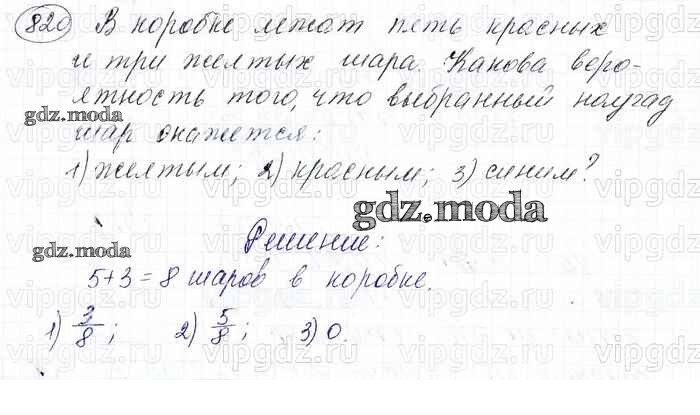 820 В коробке лежат пять красных
и три желтых шара. Какова веро-
ятность того, что выбранный наугад
gdz.moda
шар окажется:
1) желтым; 2) красным; 3) синим?
gdz.moda
Решение:
gdz.moda
5+3=8 шаров в коробке.
1) 3/8; 2) 5/8; 3) 0.
vipgdz.ru